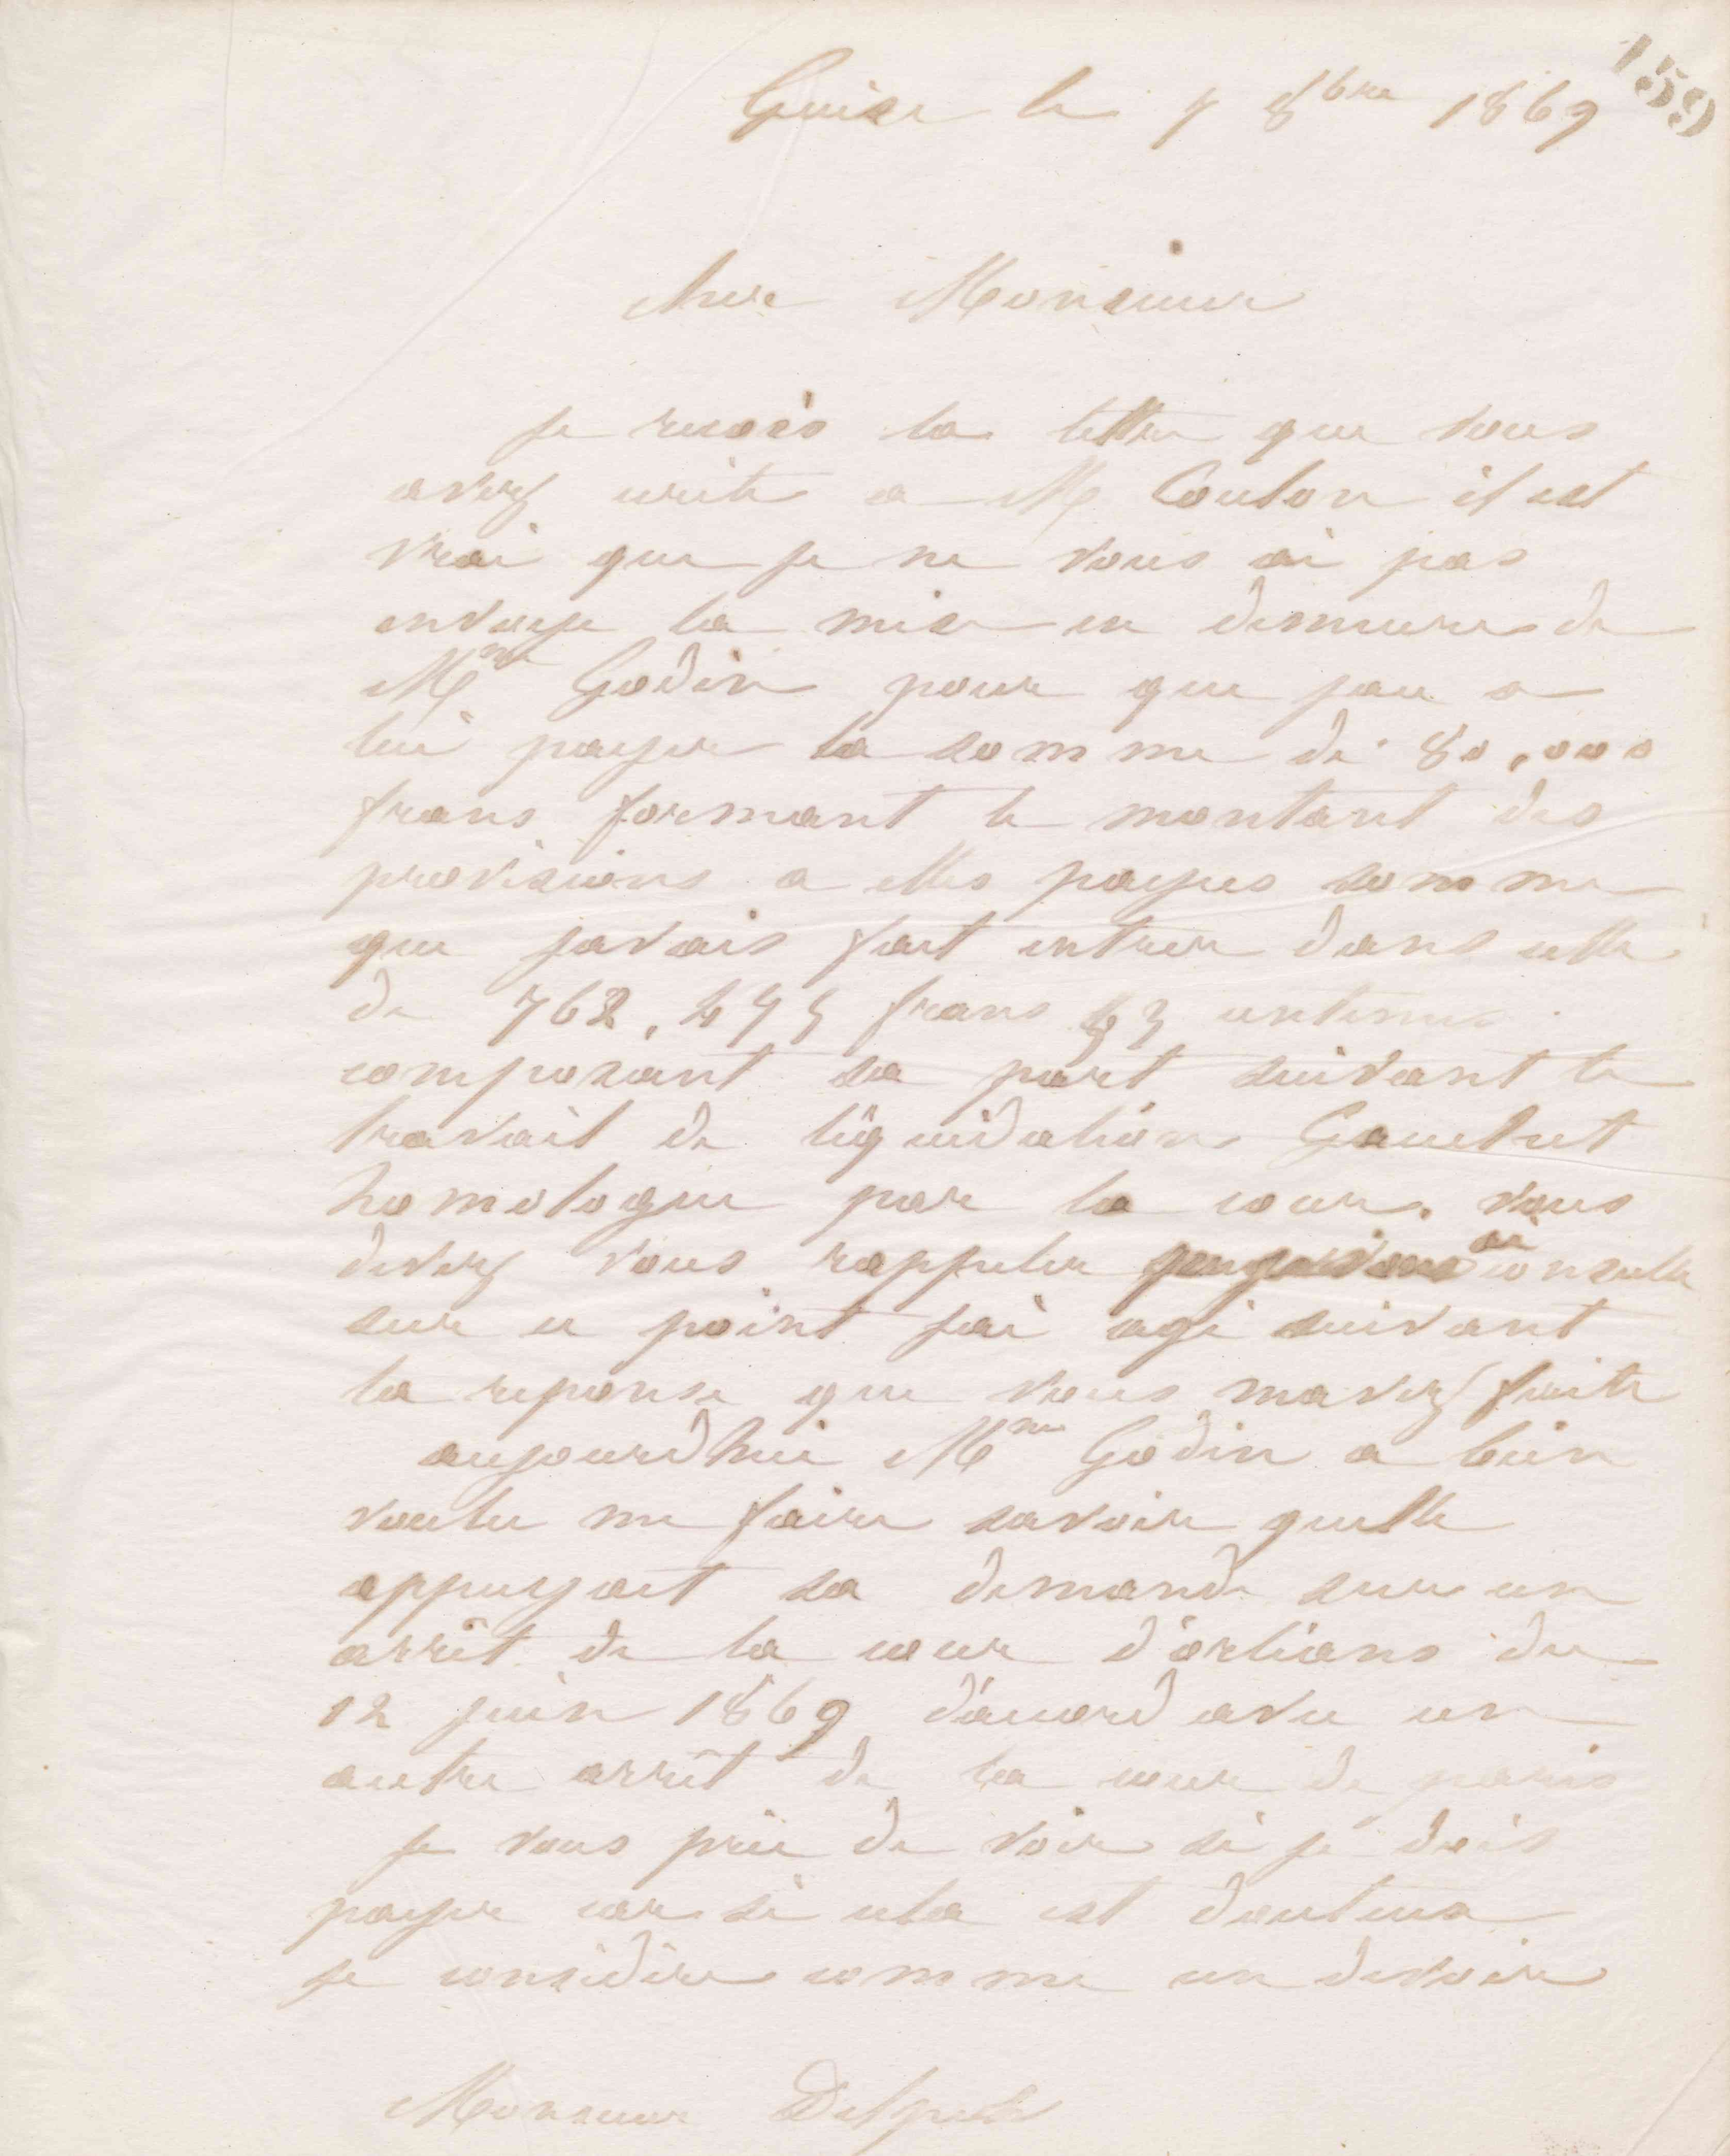 159
Guise le 7 8bre 1869
cher Monsieur
je recois la lettre que vous
avez ecrite a M Coulon il est
vrai que je ne vous ai pas
envoye la mise en demeure de
Mme Godin pour que jaie a
lui payer la somme de 80,000
frans formant le montant des
provisions a elles payees somme
que javais fait entrer dans celle
de frans centimes
composant sa part suivant le
travail de liquidation Gauchet
homologue par la cour. vous
devez vous rappeler consulte
sur ce point jai agi suivant
la reponse que vous mavez faite
aujourdhui Mme Godin a bien
voulu me faire savoir quelle
appuyait sa demande sur un
arrêt de la cour d'orléans du
12 juin 1869 d'accord avec un
autre arrêt de la cour de paris
je vous prie de voir si je dois
payer car si cela est douteux
je considère comme un devoir
Monsieur Delpech